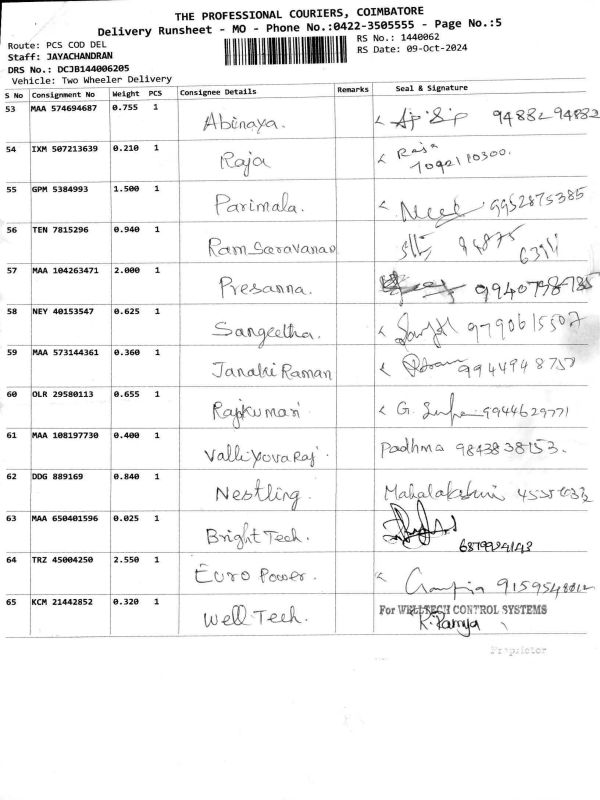 THE PROFESSIONAL COURIERS, COIMBATORE
Delivery Runsheet - MO - Phone No.:0422-3505555 - Page No.:5
Route: PCS COD DEL
RS No.: 1440062
Staff: JAYACHANDRAN
RS Date: 09-Oct-2024
DRS No.: DCJB144006205
Vehicle: Two Wheeler Delivery
S No Consignment No Weight PCS Consignee Details Remarks Seal & Signature
53 MAA 574694687 0.755 1 Abinaya. 9488294882
54 IXM 507213639 0.210 1 Raja Raja
7092110300.
55 GPM 5384993 1.500 1 Parimala. 9952875385
56 TEN 7815296 0.940 1 Ram Saravanan
57 MAA 104263471 2.000 1 Presanna.
58 NEY 40153547 0.625 1 Sangeetha. 9790615507
59 MAA 573144361 0.360 1 Janaki Raman 9944948758
60 OLR 29580113 0.655 1 Rajkumari G. 9944629771
61 MAA 108197730 0.400 1 Valli Yovaraj Padhma 9843838153.
62 DDG 889169 0.840 1 Nestling. Mahalakshmi
63 MAA 650401596 0.025 1 Bright Tech.
64 TRZ 45004250 2.550 1 Euro Power.
65 KCM 21442852 0.320 1 Well Tech. For WELLTECH CONTROL SYSTEMS
K. Ramya
Proprietor